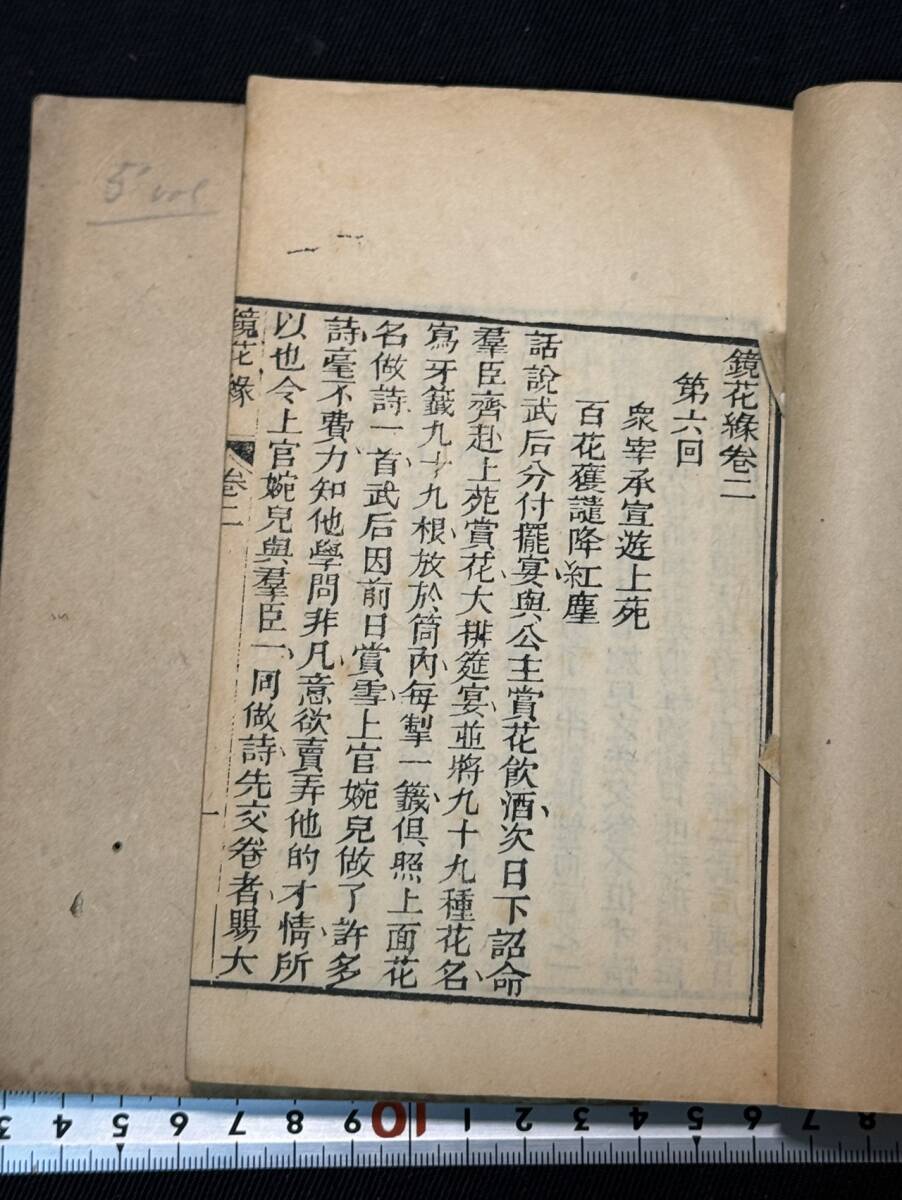 鏡花緣卷二
第六回
衆宰承宣遊上苑
百花獲譴降紅塵
話說武后分付擺宴與公主賞花飲酒次日下詔命
羣臣齊赴上苑賞花大排筵宴並將九十九種花名
寫牙籤九十九根放於筒內每掣一籤俱照上面花
名做詩一首武后因前日賞雪上官婉兒做了許多
詩毫不費力知他學問非凡意欲賣弄他的才情所
以也令上官婉兒與羣臣一同做詩先交卷者賜大
鏡花緣 卷二 一
5 vol
3 4 5 6 7 8 9 10 1 2 3 4 5 6 7 8